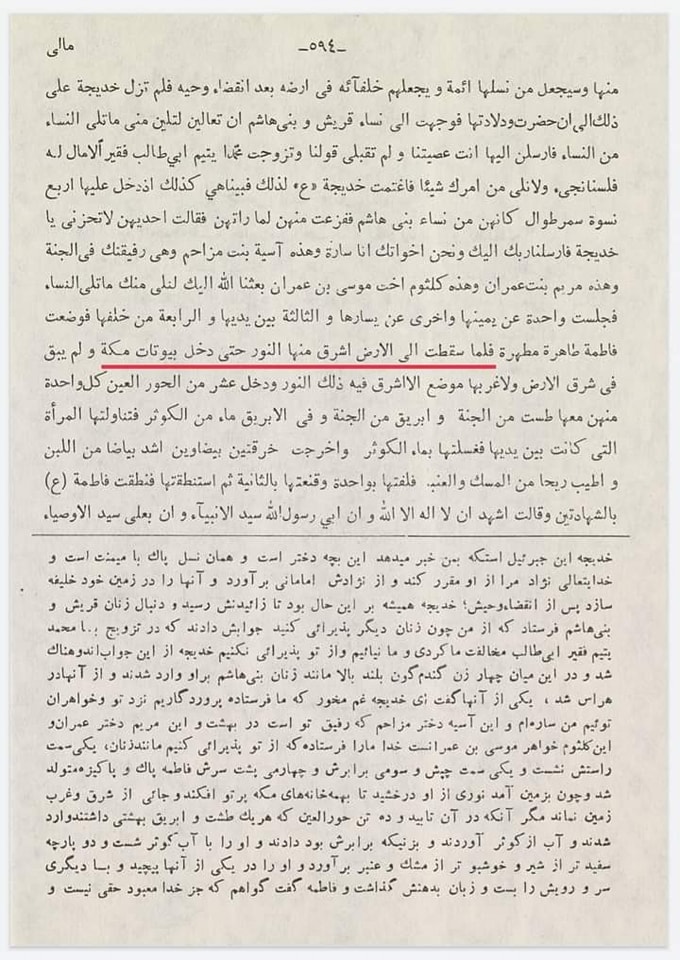 مالی
ـ٥٩٤ـ
منها وسیجعل من نسلها ائمة و یجعلهم خلفآئه فی ارضه بعد انقضاء وحیه فلم تزل خدیجة علی
ذلك الی ان حضرت ودلادتها فوجهت الی نساء قریش و بنی هاشم ان تعالین لتلین منی ماتلی النساء
من النساء فارسلن الیها انت عصیتنا و لم تقبلی قولنا وتزوجت محمدا یتیم ابی طالب فقیر الامال لـه
فلسنانجیء ولانلی من امرك شیئا فاغتمت خدیجة «ع» لذلك فبیناهی كذلك اذدخل علیها اربع
نسوة سمر طوال كانهن من نساء بنی هاشم ففزعت منهن لما راتهن فقالت احدیهن لاتحزنی یا
خدیجة فارسلناربك الیك ونحن اخواتك انا سارة وهذه آسیة بنت مزاحم وهی رفیقتك فی الجنة
وهذه مریم بنت عمران وهذه كلثوم اخت موسی بن عمران بعثنا الله الیك لنلی منك ماتلی النساء
فجلست واحدة عن یمینها واخری عن یسارها و الثالثة بین یدیها و الرابعة من خلفها فوضعت
فاطمة طاهرة مطهرة فلما سقطت الی الارض اشرق منها النور حتی دخل بیوتات مكة و لم یبق
فی شرق الارض ولاغربها موضع الااشرق فیه ذلك النور ودخل عشر من الحور العین كل واحدة
منهن معها طست من الجنة و ابریق من الجنة و فی الابریق ماء من الكوثر فتناولتها المرأة
التی كانت بین یدیها فغسلتها بماء الكوثر واخرجت خرقتین بیضاوین اشد بیاضا من اللبن
و اطیب ریحا من المسك والعنبر فلفتها بواحدة وقنعتها بالثانیة ثم استنطقتها فنطقت فاطمة (ع)
بالشهادتین وقالت اشهد ان لا اله الا الله و ان ابی رسول الله سید الانبیآء و ان بعلی سید الاوصیاء
خدیجه این جبرئیل استكه بمن خبر میدهد این بچه دختر است و همان نسل پاك با میمنت است و
خدایتعالی نژاد مرا از او مقرر كند و از نژادش امامانی برآورد و آنها را در زمین خود خلیفه
سازد پس از انقضاء وحیش؛ خدیجه همیشه بر این حال بود تا زائیدنش رسید و دنبال زنان قریش و
بنی هاشم فرستاد كه از من چون زنان دیگر پذیرائی كنید جوابش دادند كه در تزویج با محمد
یتیم فقیر ابی طالب مخالفت ما كردی و ما نیائیم واز تو پذیرائی نكنیم خدیجه از این جواب اندوهناك
شد و در این میان چهار زن گندم گون بلند بالا مانند زنان بنی هاشم براو وارد شدند و از آنهادر
هراس شد ، یكی از آنها گفت ای خدیجه غم مخور كه ما فرستاده پروردگاریم نزد تو وخواهران
توئیم من ساره ام و این آسیه دختر مزاحم كه رفیق تو است در بهشت و این مریم دختر عمران و
این كلثوم خواهر موسی بن عمرانست خدا مارا فرستاده كه از تو پذیرائی كنیم مانند زنان، یكی سمت
راستش نشست و یكی سمت چپش و سومی برابرش و چهارمی پشت سرش فاطمه پاك و پاكیزه متولد
شد وچون بزمین آمد نوری از او درخشید تا بهمه خانه های مكه پرتو افكند و جائی از شرق وغرب
زمین نماند مگر آنكه در آن تابید و ده تن حورالعین كه هریك طشت و ابریق بهشتی داشتند وارد
شدند و آب از كوثر آوردند و بزنیكه برابرش بود دادند و او را با آب كوثر شست و دو پارچه
سفید تر از شیر و خوشبو تر از مشك و عنبر برآورد و او را در یكی از آنها پیچید و بـا دیگری
سر و رویش را بست و زبان بدهنش گذاشت و فاطمه گفت گواهم كه جز خدا معبود حقی نیست و